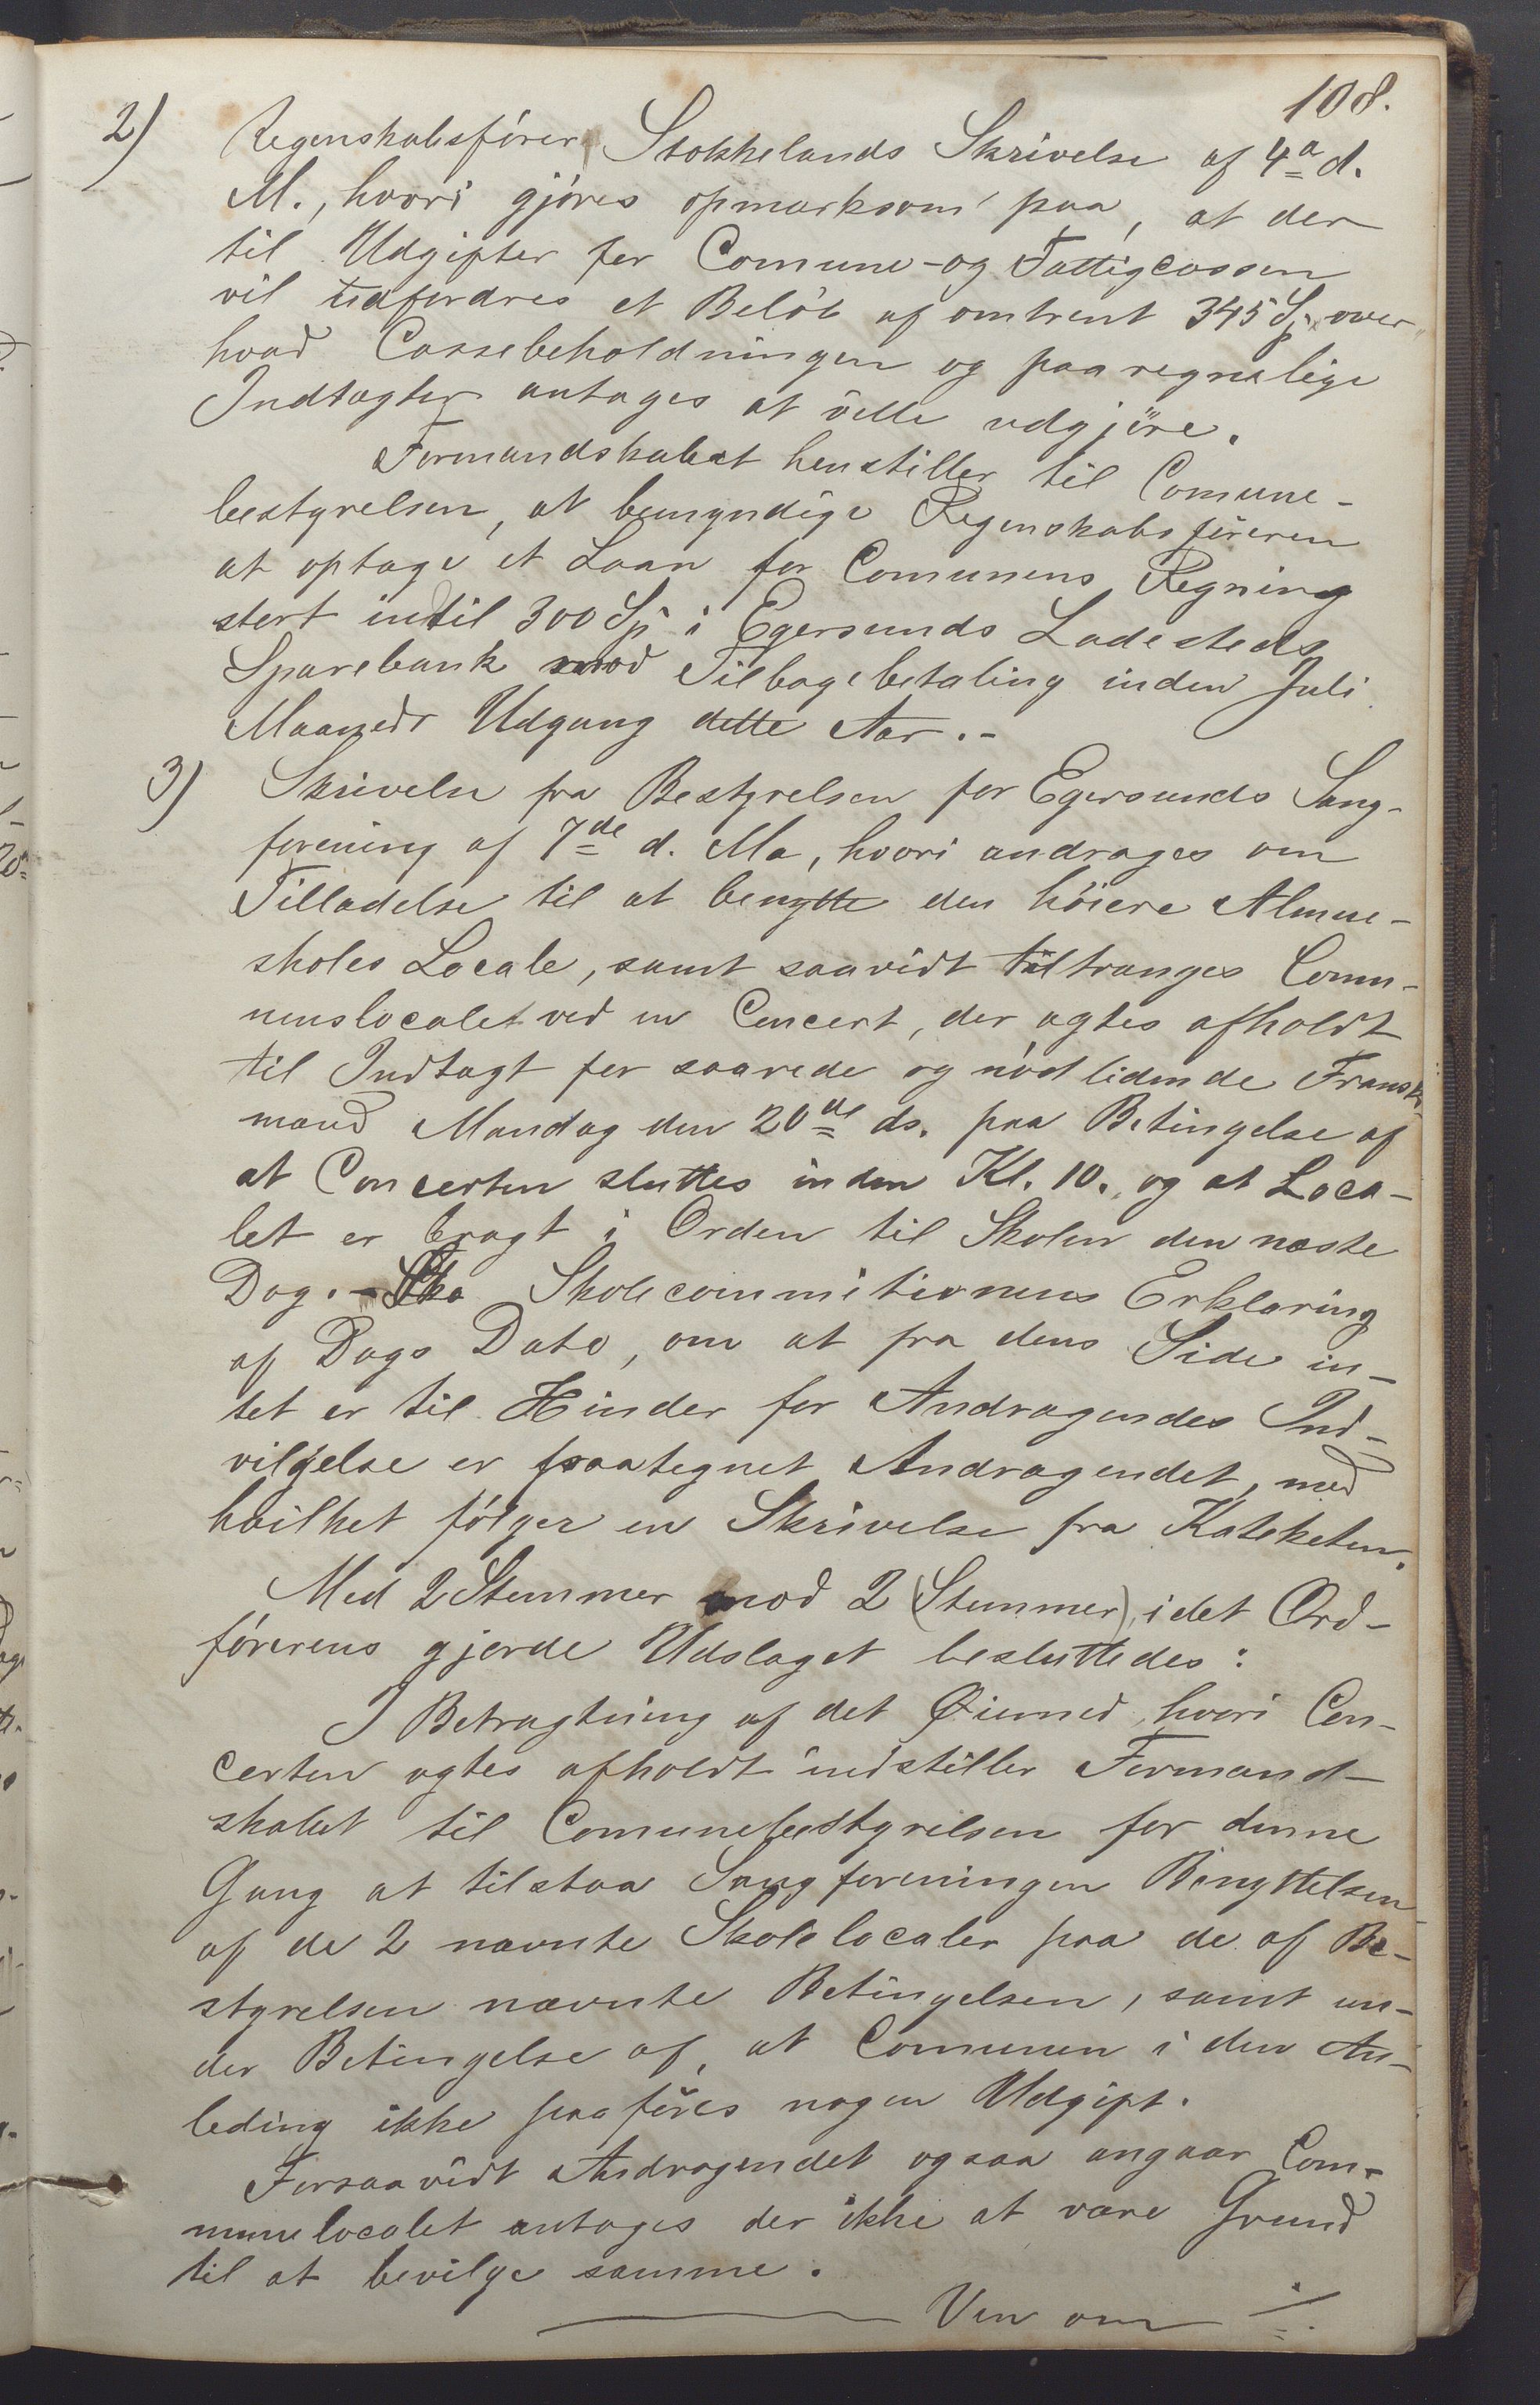 108.
2) Regnskabsfører Stokkelands Skrivelse af 4a d.
M., hvori gjøres opmærksom paa, at der
til Udgifter for Comune- og Fattigcassen
vil udfordres et Beløb af omtrent 345 Sp over
hvad Cassebeholdningen og paaregnelige
Indtægter antages at ville udgjøre.
Formandskabet henstiller til Comune-
bestyrelsen, at bemyndige Regenskabsføreren
at optage et Laan for Comunens Regning
stort indtil 300 Sp i Egersunds Ladesteds
Sparebank mod Tilbagebetaling inden Juli
Maaneds Udgang dette Aar.-
3) Skrivelse fra Bestyrelsen for Egersunds Sang-
forening af 7de d. Ma, hvori andrages om
Tilladelse til at benytte den høiere Almue-
skoles Locale, samt saavidt tiltrænges Comu-
nenslocalet ved en Concert, der agtes afholdt
til Indtægt for saarede og nødlidende Fransk-
mænd Mandag den 20de ds. paa Betingelse af
at Concerten sluttes inden Kl. 10. og at Loca-
let er bragt i Orden til Skolen den næste
Dag. - Skolecommitionens Erklæring
af Dags Dato, om at fra dens Side in-
tet er til Hinder for Andragendes Ind-
vilgelse er paategnet Andragendet, med
hvilket følger en Skrivelse fra Kateketen.
Med 2 Stemmer mod 2 (Stemmer), idet Ord-
førerens gjorde Udslaget besluttedes:
I Betragtning af det Øiemed, hvori Con-
certen agtes afholdt indstiller Formand-
skabet til Comunebestyrelsen for denne
Gang at tilstaa Sangforeningen Benyttelsen
af de 2 nævnte Skolelocaler paa de af Be-
styrelsen nævnte Betingelsen, samt un-
der Betingelse af, at Comunen i den An-
leding ikke paaføres nogen Udgift.
Forsaavidt Andragendet ogsaa angaar Com-
munelocalet antages der ikke at være Grund
til at bevilge samme.
Ven om ./.